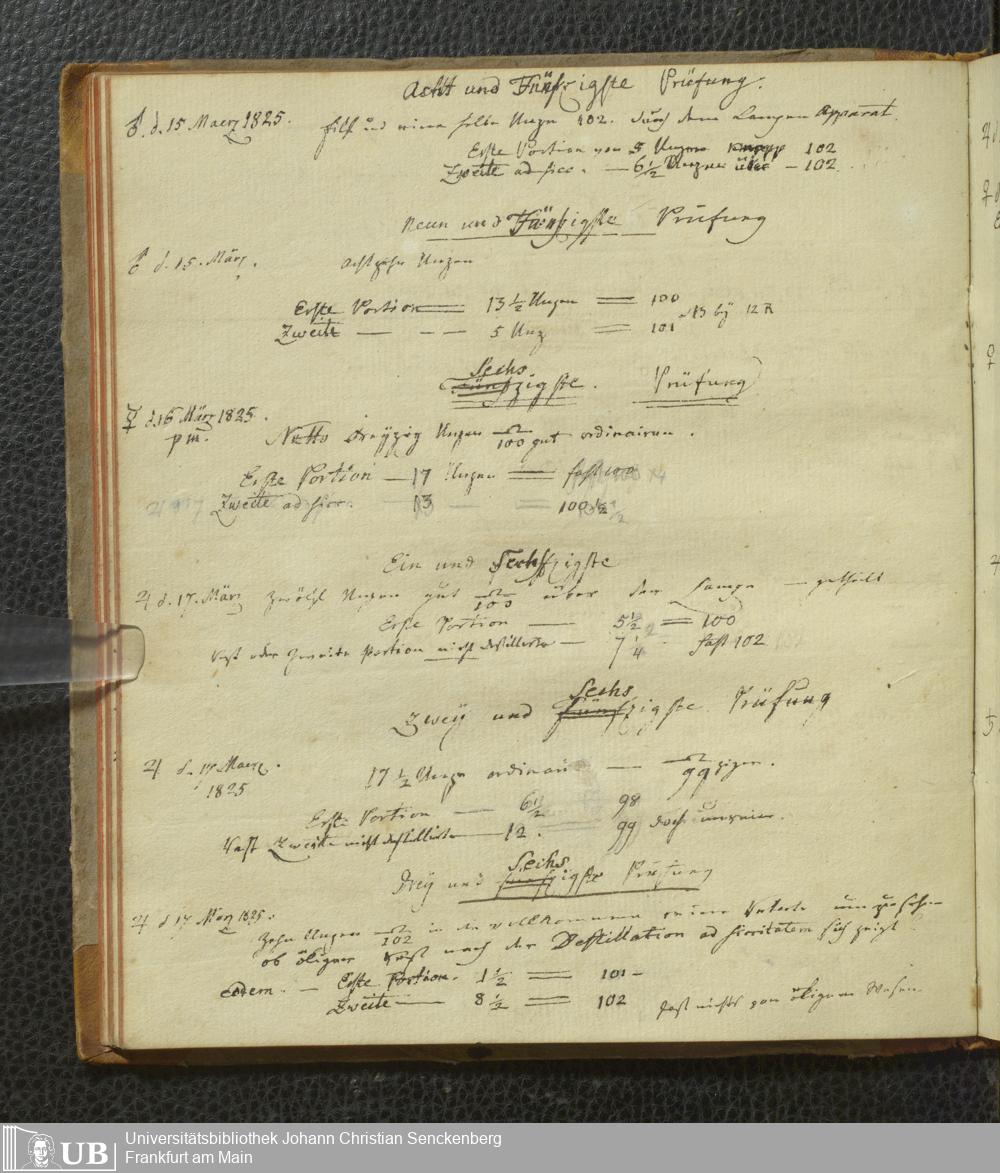 Acht und Fünfzigste Prüfung.
d. 15 Maerz 1825. Eilf und eine halbe Unzen 102. durch den Langen Apparat.
Erste Portion von 5 Unzen knapp 102
Zweite ad sicc. — 6 1/2 Unzen über — 102
Neun und Fünfzigste Prüfung
d. 15. März. Achtzehn Unzen
Erste Portion = 13 1/2 Unzen = 100
Zweite — — — 5 Unz = 101 bey 12 R
Sechs
Fünfzigste. Prüfung
☿ d. 16 März 1825.
pm. Netto dreyzig Unzen 100 gut ordinairen.
Erste Portion — 17 Unzen = fast 100
Zweite ad sicc. 13 — = 100 1/2
Ein und Sechszigste
♃ d. 17. März Zwölf Unzen gut 100 über der Lampe — getheilt
Erste Portion — 5 1/2 = 100
Rest oder Zweite Portion nicht destillirte — 7 1/4 fast 102
Sechs
Zwey und Fünfzigste. Prüfung
♃ d. 17 Maerz.
1825 17 1/2 Unzen ordinair — 99 zigen.
Erste Portion — 6 1/2 98
Rest Zweite nicht destillirte — 12. 99 doch unrein.
Sechs
Drey und fünfzigste Prüfung
♃ d 17 März 1825. Zehn Unzen 102 in der vollkommen reinen Retorte um zu sehen
ob öligner Rest nach der Destillation ad siccitatem sich zeigt
eodem. — Erste Portion. 1 1/2 = 101 —
Zweite — 8 1/2 = 102 Fast nichts von öligem Wesen.
Universitätsbibliothek Johann Christian Senckenberg
Frankfurt am Main
UB